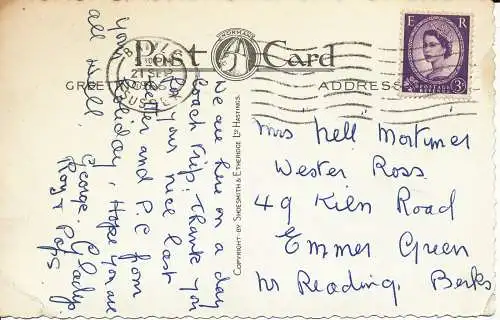 Post Card
NORMAN
BATTLE
SUSSEX
E R
POSTAGE REVENUE
3D
GREET
ADDRESS
We are here on a day
Coach trip! Thank you
for your nice last
letter and P.C from
your holiday, Hope you are
all well.
George. Gladys.
Roy + Pops.
COPYRIGHT BY SHOESMITH & ETHERIDGE LTD HASTINGS.
Mrs Nell Mortimer
Wester Ross
49 Kiln Road
Emmer Green
Nr Reading, Berks